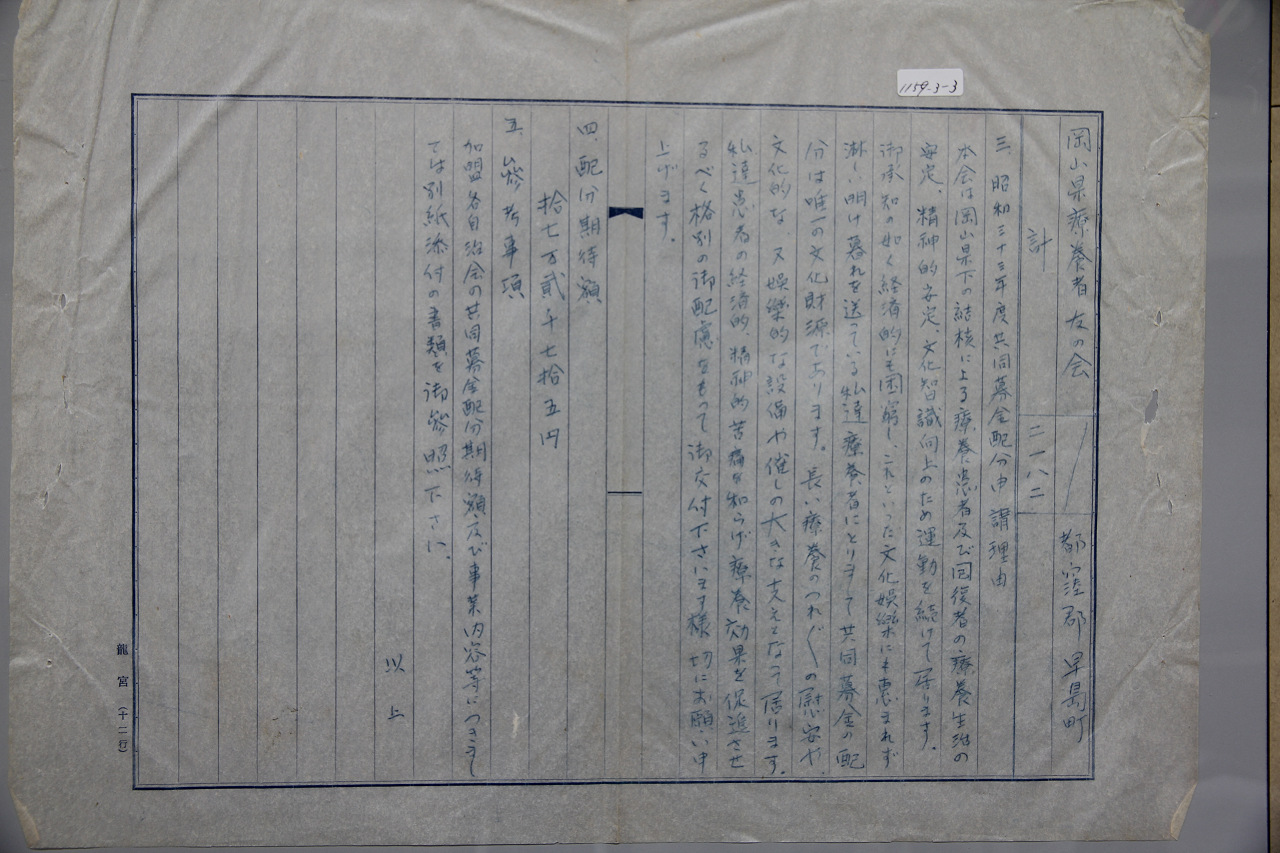 1159-3-3
岡山県療養者友の会 都窪郡早島町
計 二一八二
三、昭和三十三年度共同募金配分申請理由
本会は岡山県下の結核による療養患者及び回復者の療養生活の
安定、精神的安定、文化智識向上のため運動を続けて居ります。
御承知の如く経済的にも困窮し、これといった文化娯楽にも恵まれず
淋しい明け暮れを送っている私達療養者にとりまして共同募金の配
分は唯一の文化財源であります。長い療養のつれ〴〵の慰安や、
文化的な、又娯楽的な設備や催しの大きな支えとなって居ります。
私達患者の経済的、精神的苦痛を和らげ療養効果を促進させ
るべく格別の御配慮をもって御交付下さいます様切にお願い申
上げます。
四、配分期待額
拾七万貳千七拾五円
五、參考事項
加盟各自治会の共同募金配分期待額及び事業内容等につきまし
ては別紙添付の書類を御參照下さい。
以上
龍宮(十二行)